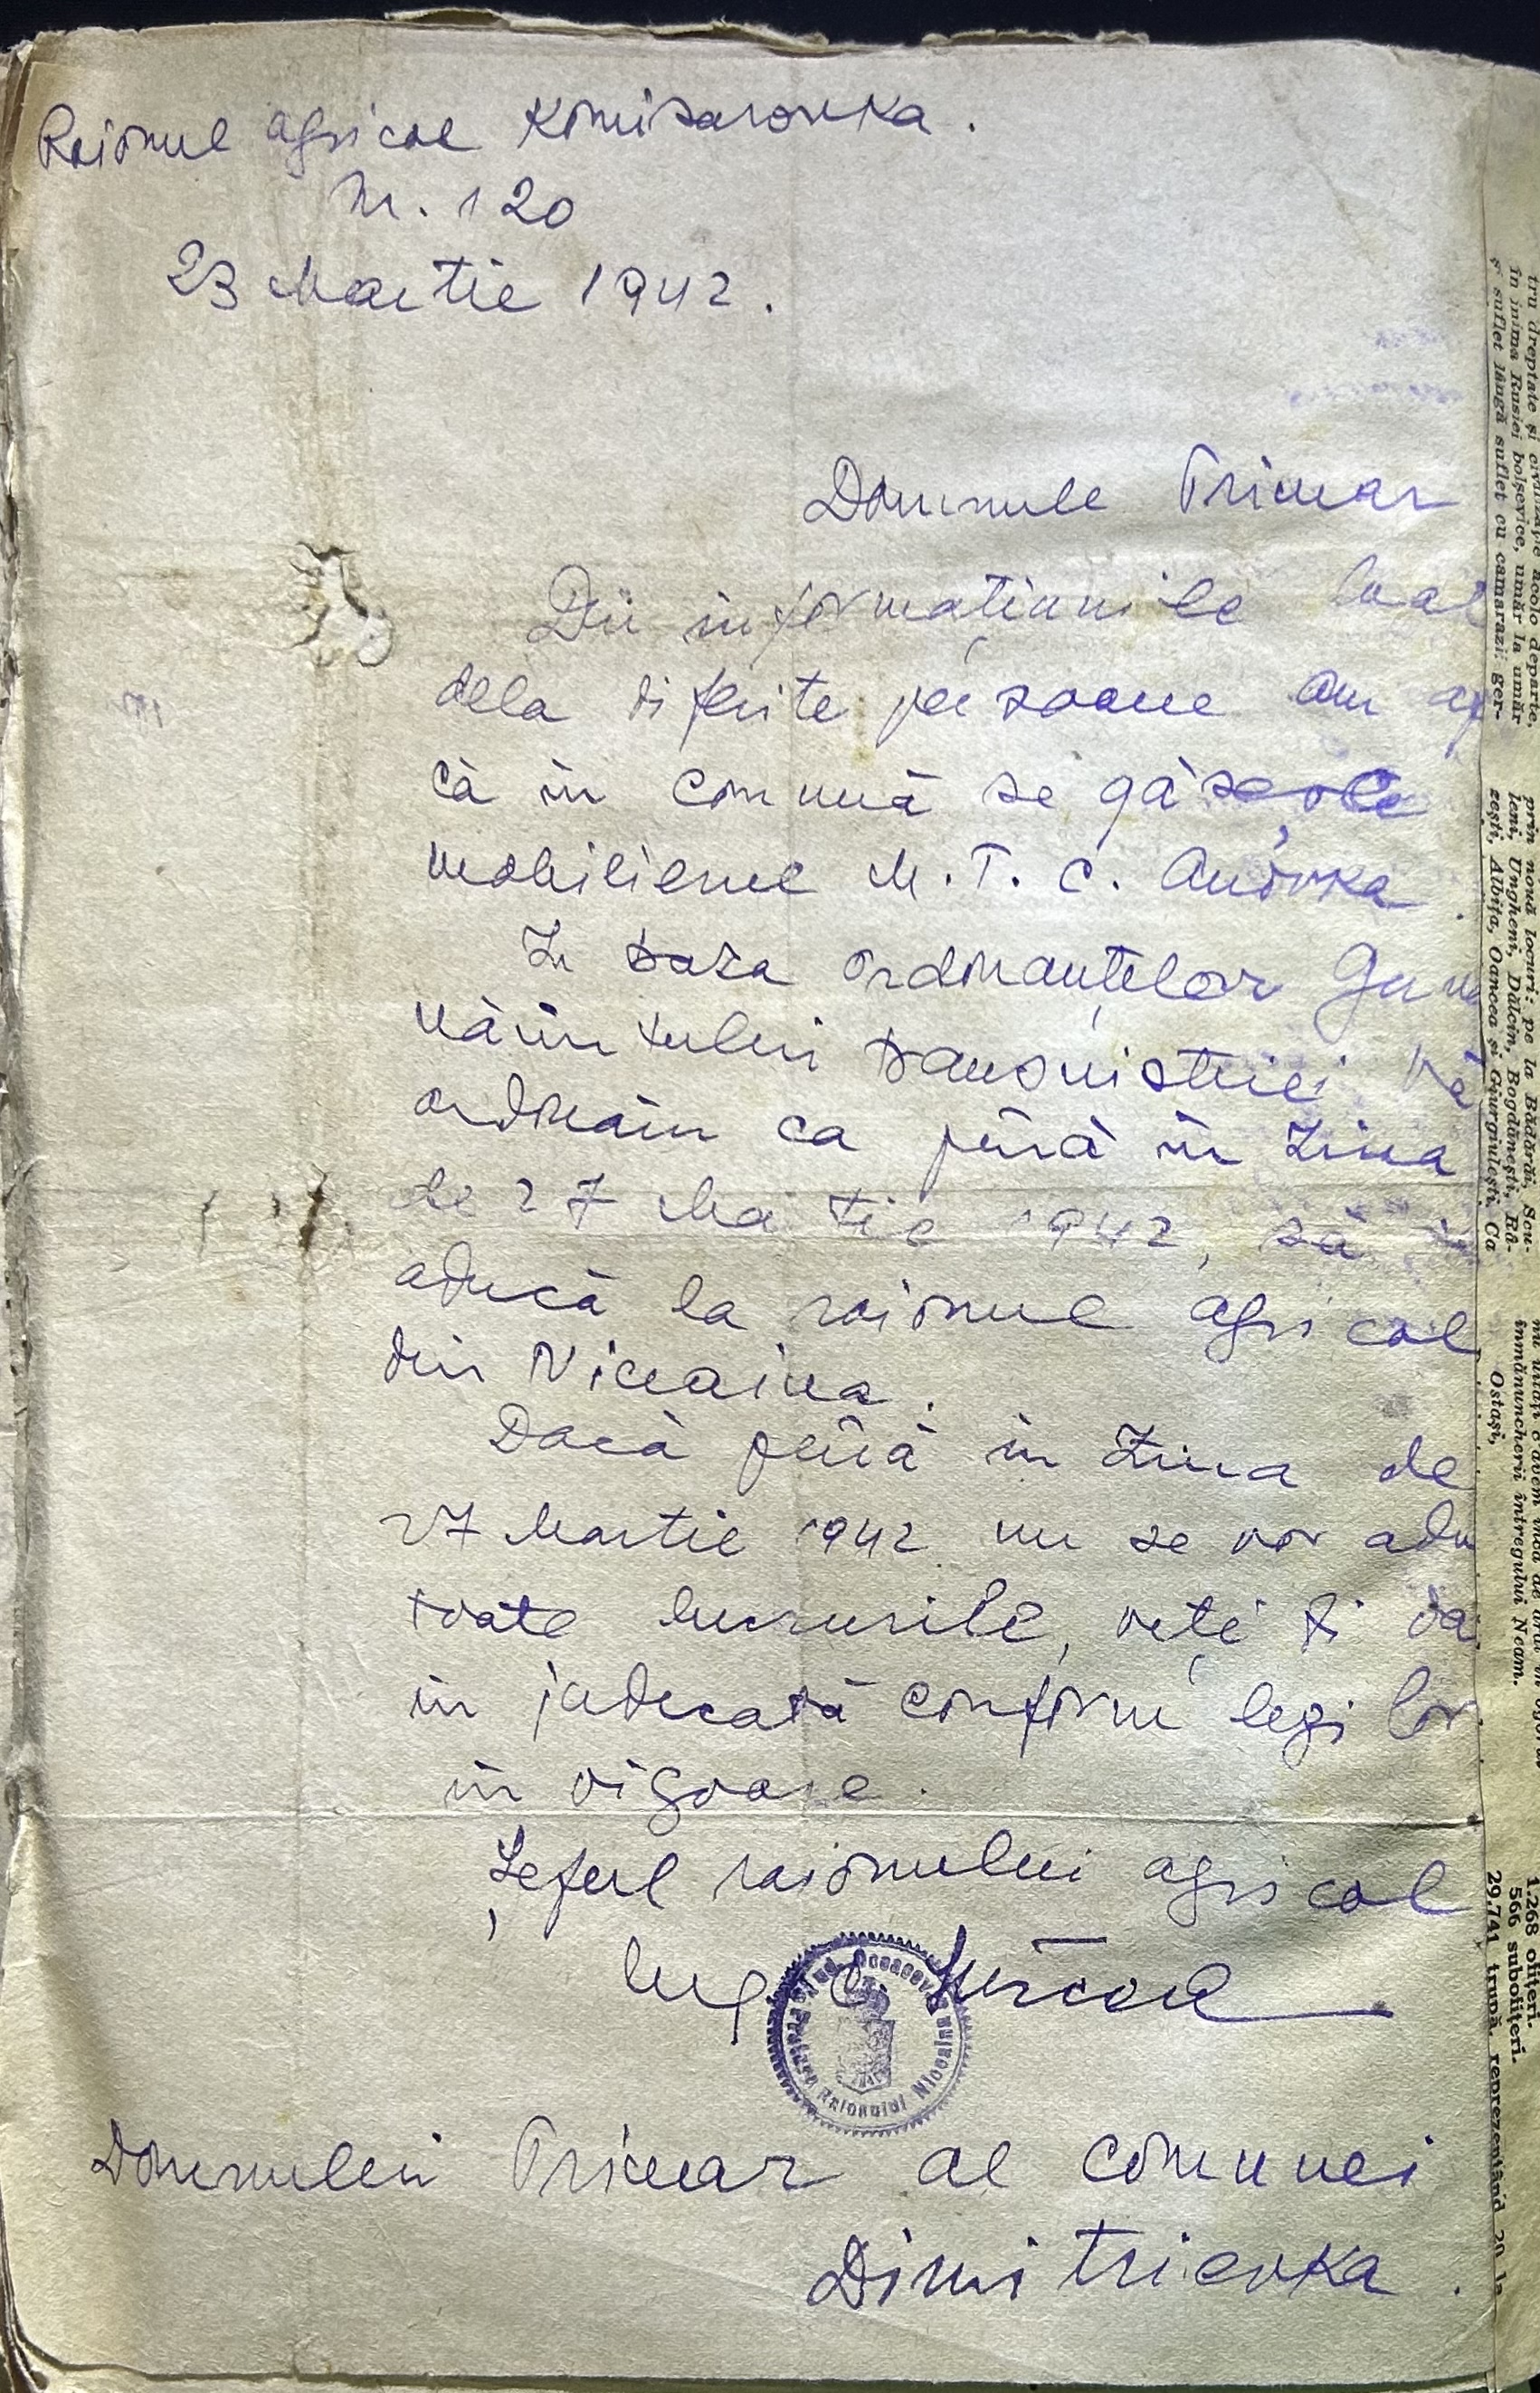 Raionul agricol Komisarovka.
Nr. 120
23 Martie 1942.
Domnule Primar
Din informațiunile luat
dela diferite persoane am af
că în comună se găsește
mobilierul M.T.C.
În baza ordonanțelor Guver
nământului Transnistriei Vă
ordonăm ca până în ziua
de 27 Martie 1942, să
aducă la raionul agricol
din Nicaina.
Dacă până în ziua de
27 Martie 1942 nu se vor adu
toate lucrurile, veți fi da
în judecată conform legilor
în vigoare.
Șeful raionului agricol
Ing.
Raionului Nicaina
Domnului Primar al comunei
Dimitrievka.
tru dreptate și acolo departe,
în inima Rusiei bolșevice, umăr la umăr
și suflet lângă suflet cu camarazii ger-
prin nouă locuri: pe la Bădărăi, Scu-
leni, Ungheni, Dălcin, Bogdănești, Ră-
zești, Albița, Oancea și Giurgiulești. Ca
înmănuncherii întregului Neam.
Ostași,
1.268 ofițeri.
566 subofițeri.
29.741 trupă, reprezentând 20 la